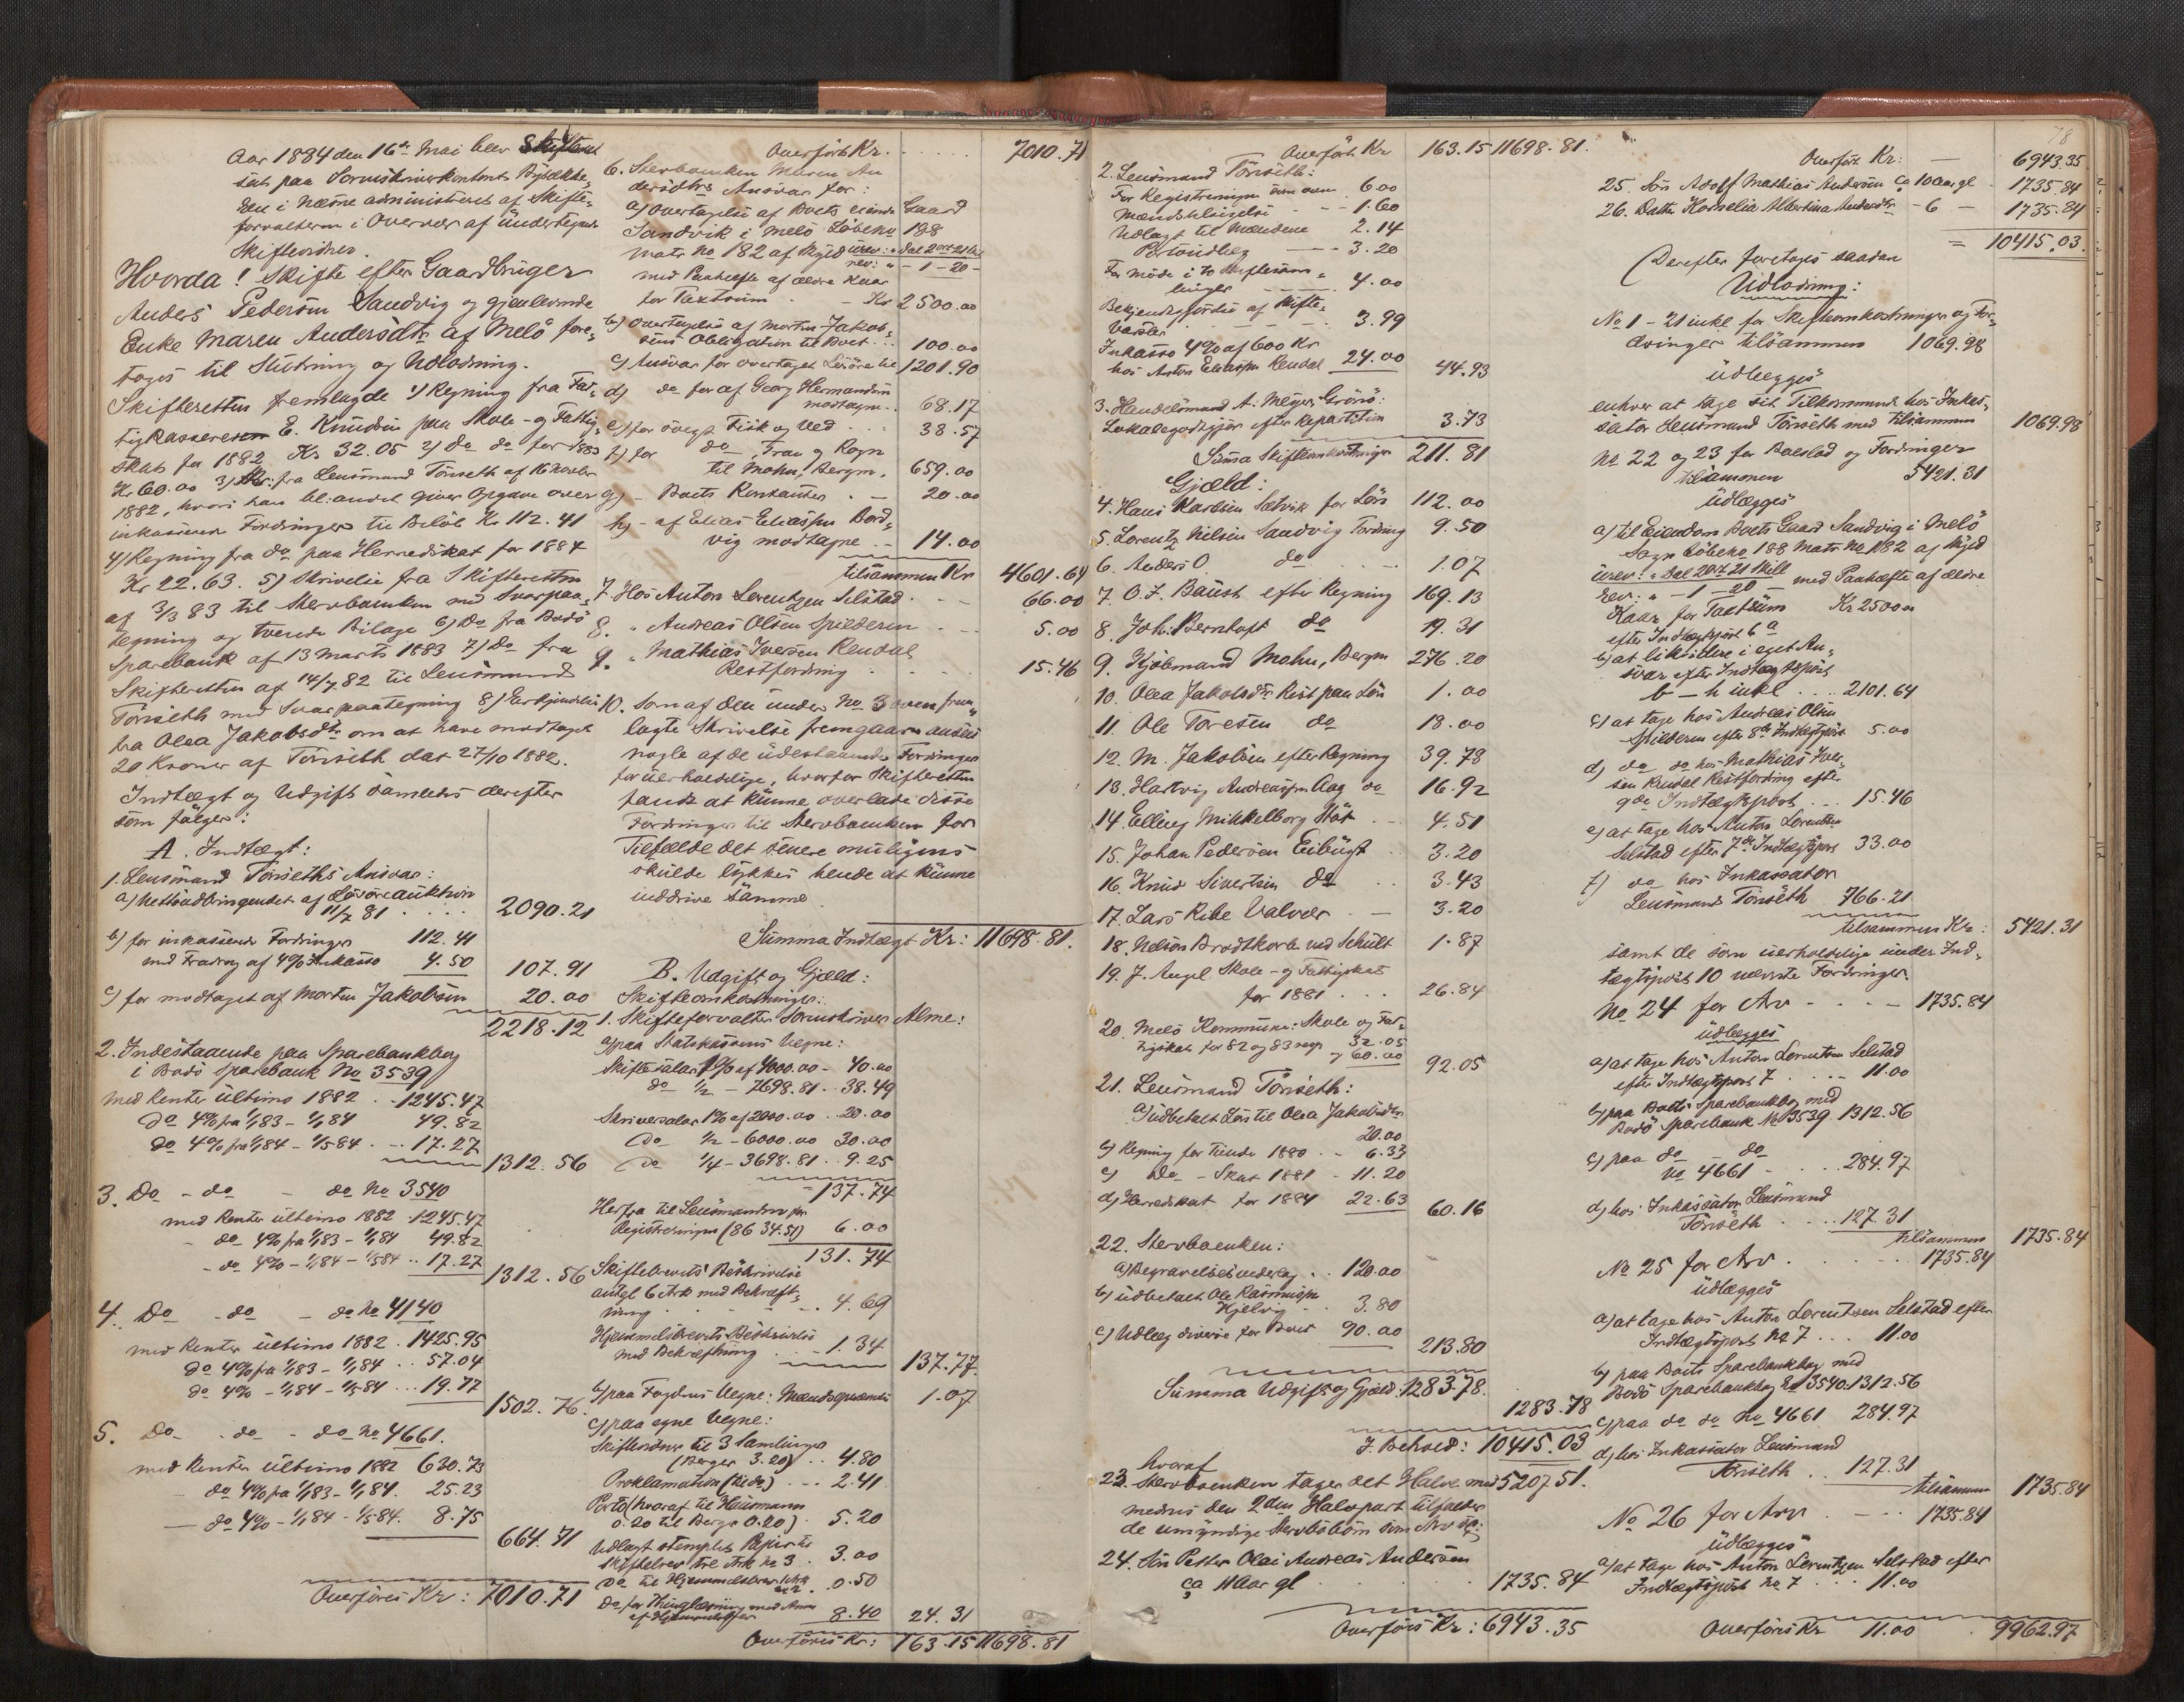 Aar 1884 den 16de Mai blev Skifteret
sat paa Sorenskriverkontoret
den i Næsne administreret af Skifte-
forvalteren i Overvær af undertegnede
Skiftevidner.
Hvorda! Skifte efter Gaardbruger
Anders Pedersen Sandvig og gjenlevende
Enke Maren Andersdtr af Melö fore-
toges til Slutning og Udlodning.
Skifteretten fremlagde 1) Regning fra Fat-
tigkassereren E. Knudsen paa Skole- og Fattig-
skat for 1882 Kr 32.05 2) Do do for 1883
Kr 60.00 3) Skr: fra Lensmand Tönseth af 16
1882, hvori han bl: andet giver Opgave over
inkasserede Fordringer til Belöb Kr 112.41
4) Regning fra do paa Herredskat for 1884
Kr 22.63. 5) Skrivelse fra Skifteretten
af 3/3 83 til Stervboenken med Svarpaa-
tegning og tvende Bilage 6) Do fra Bodö
Sparebank af 13 Marts 1883 7) Do fra
Skifteretten af 14/7 82 til Lensmand
Tönseth med Svarpaategning 8) Erkjendelse
fra Olea Jakobsdtr om at have modtaget
20 Kroner af Tönseth dat 27/10 1882.
Indtægt og Udgift samledes derefter
som fölger:
A. Indtægt:
1. Lensmand Tönseths Ansvar:
a) Nettoudbringendet af Lösöreauktion
11/7 81 . . . . 2090.21
b) for inkasserede Fordringer 112.41
med Fradrag af 4% Inkasso 4.50
107.91
c) for modtaget af Morten Jakobsen 20.00
2218.12
2. Indestaaende paa Sparebankbog
i Bodö Sparebank No 3539
med Renter ultimo 1882 . . 1245.47
do 4% fra 1/1 83 - 1/1 84 49.82
do 4% fra 1/1 84 - 1/5 84 . . . 17.27
1312.56
3. Do - do - do No 3540
med Renter ultimo 1882 . 1245.47
- do 4% fra 1/1 83 - 1/1 84 49.82
- do 4% - 1/1 84 - 1/5 84 . . 17.27
1312.56
4. Do - do - do No 4140
med Renter ultimo 1882 . 1425.95
do 4% fra 1/1 83 - 1/1 84 . . 57.04
do 4% - 1/1 84 - 1/5 84 . . . 19.77
1502.76.
5. Do - do - do No 4661.
med Renter ultimo 1882 630.73
do 4% fra 1/1 83 - 1/1 84. 25.23
- do 4% - 1/1 84 - 1/5 84. 8.75
664.71
Overföres Kr: 7010.71
Overfört Kr. . . . . . 7010.71
6. Stervboenken Maren An
dersdtrs Ansvar for:
a) Overtagelse af Boets eiende Gaard
Sandvik i Melö Löbeno 188
matr No 182 af Skyld urev: " Dal 2 ort 21 skil
rev: " - 1 - 20 -
med Paahæfte af ældre Kaar
for Taxtsum . - Kr 2500.00
b) Overtagelse af Morten Jakob-
sens Obligation til Boet . . 100.00
c) Ansvar for overtaget Lösöre til 1201.90
d) do for af Georg Hermandsen
modtagen . . 68.17
e) for övrigt Fisk og Ved . . . 38.57
f) for do, Tran og Rogn
til Mohn, Bergen. 659.00
g) - Boets Kontanter . - 20.00
h) - af Elias Eliassen Bord-
vig modtagne . - 14.00
tilsammen Kr 4601.64
7. Hos Anton Lorentzen Selstad . - - 66.00
8. " Andreas Olsen Spilderen . - - 5.00
9. " Mathias Iversen Rendal
Restfordring . . . . 15.46
10. Som af den under No 3 oven frem-
lagte Skrivelse fremgaar ansees
nogle af de udestaaende Fordringer
for uerholdelige, hvorfor Skifteretten
fandt at kunne overlade disse
Fordringer til Stervboenken for
Tilfælde det senere muligens
skulde lykkes hende at kunne
inddrive samme.
Summa Indtægt Kr: 11698.81.
B. Udgift og Gjæld:
Skifteomkostninger:
1. Skifteforvalter Sorenskriver Alme:
a) paa Statskassens Vegne:
Skiftesalær 1% af 4000.00 - 40.00
do 1/2 - 7698.81. . 38.49
Skriversalær 1% af 2000.00 . 20.00
Do 1/2 - 6000.00 30.00
Do 1/4 - 3698.81 . . 9.25
= 137.74
Herfra til Lensmanden for
Registreringen (86 34.51) 6.00
131.74
Skiftebrevets Beskrivelse
antgl 6 Ark med Bekræft-
ning . . . . . . 4.69
Hjemmelsbrevets Beskrivelse
med Bekræftning . . - 1.34
137.77.
b) paa Fogdens Vegne: Mændsopnævnelse 1.07
c) paa egne Vegne:
Skiftevidner til 3 Samlinger
(Berger 3.20) . . 4.80
Proklamation (tiede) . - - 2.41
Porto (hvoraf til Hausmann
0.20 til Berger 0.20) . 5.20
Udlagt stemplet Papir til
Skiftebrev tre Ark No 3 . 3.00
Do til Hjemmelsbrev 1 Ark
No 2 . 0.50
Do for Thinglæsning med Anm
af Hjemmelsbrev 8.40 24.31
Overföres Kr: 163.15 11698.81
78
Overfört Kr 163.15 11698.81.
2. Lensmand Tönseth:
For Registreringen som oven 6.00
Mændsbesigtelse . - - 1.60
Udlagt til Mændene 2.14
Portoudlæg - - - 3.20
For Möde i to Skiftesam-
linger - - - 4.00
Bekjendtgjörelse af Skifte-
varsler . - - - - - . 3.99
Inkasso 4% af 600 Kr
hos Anton Eliassen Rendal 24.00
44.93
3. Handelsmand A. Meyer, Grönö:
Lokalegodtgjör efter Repartition 3.73
Summa Skifteomkostninger 211.81
Gjæld:
4. Hans Karlsen Sætvik for Lön 112.00
5. Lorentz Nilsen Sandvig Fordring 9.50
6. Anders O. do - . . . 1.07
7. O. J. Baust efter Regning 169.13
8. Joh. Bernhoft do 19.31
9. Kjöbmand Mohn, Bergen 276.20
10. Olea Jakobsdtr Rest paa Lön 1.00
11. Ole Toresen do 13.00
12. M. Jakobsen efter Regning 39.78
13. Hartvig Andreassen Aag do 16.92
14. Elling Mikkelborg Stöt . - 4.51
15. Johan Pedersen Eibugt . . 3.20
16. Knud Sivertsen do . . 3.43
17. Lars Ribe Valvær . - 3.20
18. Nelson Brodtkorb ved Schult 1.87
19. J. Angel Skole- og Fattigskat
for 1881 . . . 26.84
20. Melö Kommune: Skole og Fat-
tigskat for 82 og 83 resp 32.05
og 60.00 92.05
21. Lensmand Tönseth:
a) udbetalt Lön til Olea Jakobsdtr
20.00
b) Regning for Tiende 1880 . . 6.33
c) Do - Skat 1881 - 11.20
d) Herredskat for 1884 22.63 60.16
22. Stervboenken:
a) Begravelsesvederlag . . 120.00
b) udbetalt Ole Rasmussen
Hjelvig . . 3.80
c) Udlæg diverse for Boet 90.00
213.80
Summa Udgift og Gjæld: 1283.78.
1283.78
I Behold: 10415.03
hvoraf
23. Stervboenken tager det Halve med 5207.51.
medens den 2den Halvpart tilfalder
de umyndige Stervbobörn som Arv
24. Sön Peder Olai Andreas Andersen
ca 11 Aar gl . . . 1735.84
Overföres Kr: 6943.35
Overfört Kr: - 6943.35
25. Sön Adolf Mathias Andersen ca 10 aar gl - 1735.84
26. Datter Kornelia Albertina Andersdtr - 6 - 1735.84
= 10415.03.
Derefter foretoges saadan
Udlodning:
No 1 - 21 inkl for Skifteomkostninger og For-
dringer tilsammen 1069.98
udlægges
enhver at tage sit Tilkommende hos Inkas-
sator Lensmand Tönseth med tilsammen 1069.98
No 22 og 23 for Boeslod og Fordringer
tilsammen 5421.31
udlægges
a) til Eiendom Boets Gaard Sandvig i Melö
Sogn Löbeno 188 Matr No 182 af Skyld
urev: " Dal 2 ort 21 Skill
rev: " - 1 - 20 - med Paahæfte af ældre
Kaar for Taxtsum Kr 2500.00
efter Indtægtspost 6 a
b) at likvidere i eget An-
svar efter Indtægtspost
b - h inkl . . . . 2101.64
c) at tage hos Andreas Olsen
Spilderen efter 8de Indtægtspost 5.00
d) do do hos Mathias Iver-
sen Rendal Restfordring efter
9de Indtægtspost . . . 15.46
e) at tage hos Anton Lorentzen
Selstad efter 7de Indtægtspost 33.00
f) do hos Inkassator
Lensmand Tönseth 766.21
tilsammen Kr: 5421.31
samt de som uerholdelige under Ind-
tægtspost 10 nævnte Fordringer.
No 24 for Arv - . . - 1735.84
udlægges
a) at tage hos Anton Lorentzen Selstad
efter Indtægtspost 7 . . . - 11.00
b) paa Boets Sparebankbog med
Bodö Sparebank No 3539 1312.56
c) paa do - do
No 4661 - . . . 284.97
d) hos Inkassator Lensmand
Tönseth . . . . 127.31
tilsammen 1735.84
No 25 for Arv . . - . 1735.84
udlægges
a) at tage hos Anton Lorentzen Selstad efter
Indtægtspost No 7 . . . 11.00
b) paa Boets Sparebankbog med
Bodö Sparebankbog No 3540. 1312.56
c) paa do do No 4661 284.97
d) hos Inkassator Lensmand
Tönseth . . 127.31
tilsammen 1735.84
No 26 for Arv . - . . 1735.84
udlægges
a) at tage hos Anton Lorentzen Selstad efter
Indtægtspost No 7 . . . 11.00
Overföres Kr 11.00 9962.97